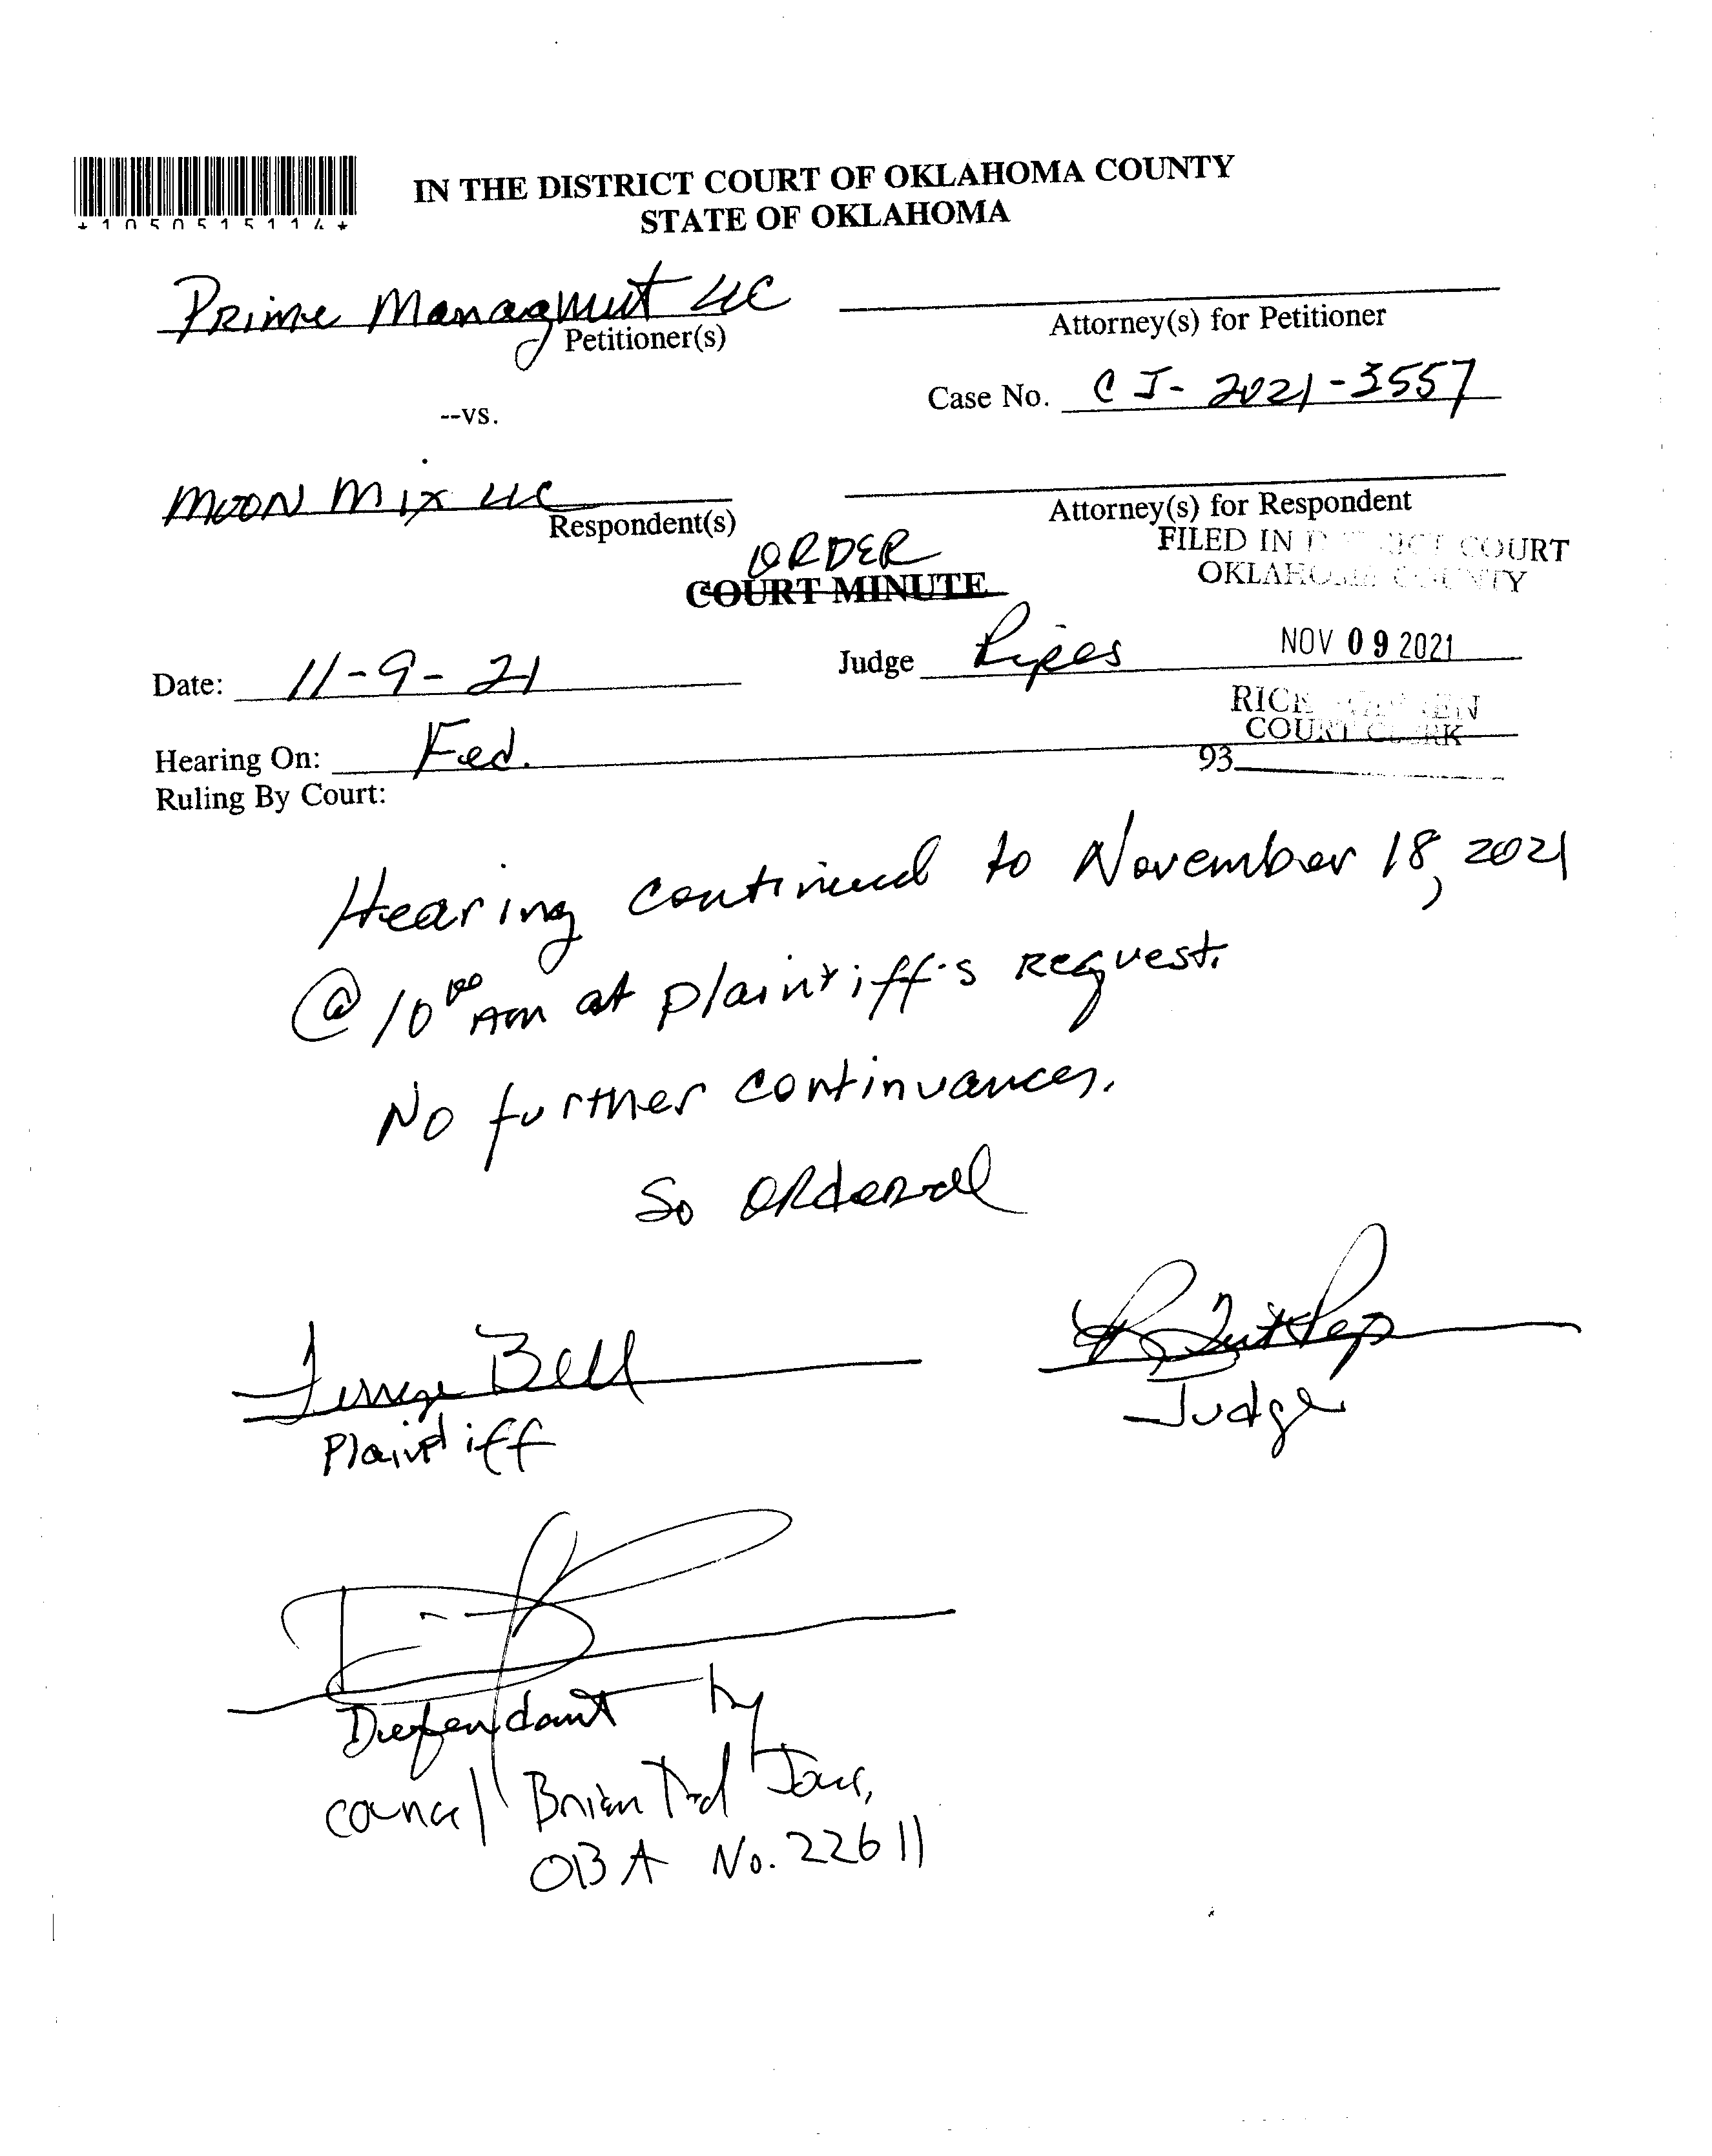 *1050515114*
IN THE DISTRICT COURT OF OKLAHOMA COUNTY
STATE OF OKLAHOMA
Prime Managmut LLC
Petitioner(s)
Attorney(s) for Petitioner
Case No. CJ-2021-3557
--vs.
MOON MIX LLC
Respondent(s)
Attorney(s) for Respondent
ORDER
COURT MINUTE
FILED IN COURT
OKLAHOMA COUNTY
Date: 11-9-21
Judge
NOV 09 2021
RICK
COURT CLERK
Hearing On: Fed.
93
Ruling By Court:
Hearing continued to November 18, 2021
@ 10 00 AM at plaintiff's request.
No further continuances.
So Ordered
Bell
Plaintiff
Judge
Defendant by
Brian Ted
OBA No. 22611